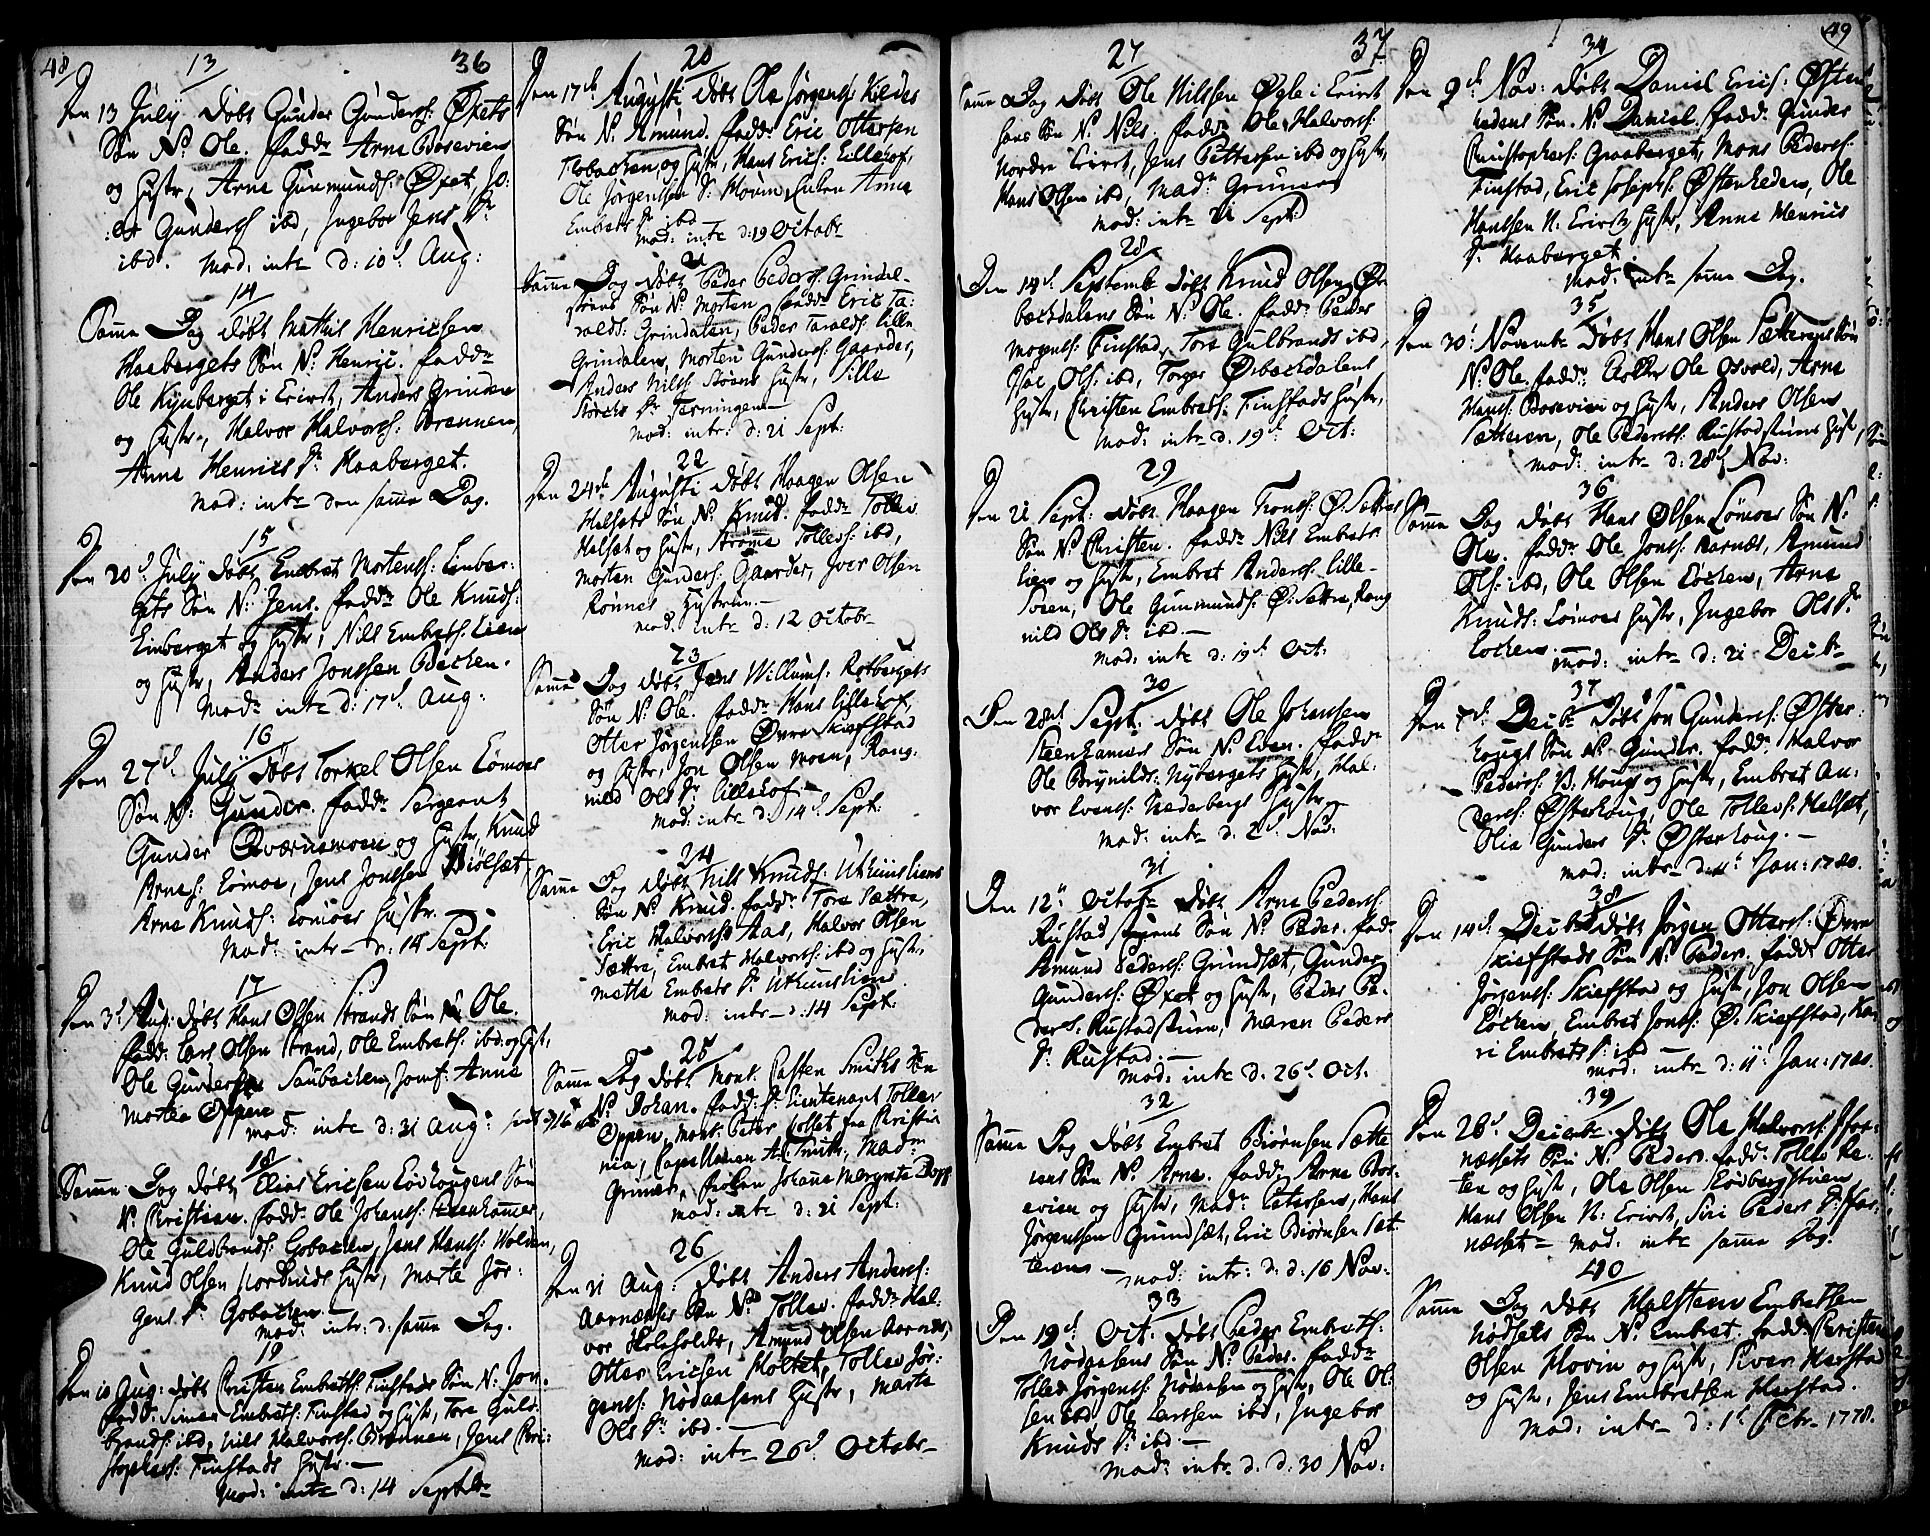 48
13
36
Den 13 July døbt Gunder Gunders: Øxets
Søn N: Ole. fadd: Arne Bosevien
og Hustr, Arne Gunmunds: Øxet, Jo:
Gunders ibd, Ingebor Jens Dr
ibd. mod: intr d: 10d Aug:
14
Samme Dag døbt Mathis Henrichsen
Haabergets Søn N: Henric. fadd:
Ole Kynberget i Elvret, Anders Grinden
og Hustr, Halvor Halvors: Brennen,
Anne Henrics Dr Haaberget.
mod: intr den samme Dag.
15
Den 20d July døbt Embret Mortens: Ember-
gets Søn N: Jens. fadd: Ole Knuds:
Emberget og Hustr, Nils Embrets: Lien
og Hustr, Anders Jonssen Bechen.
Mod: intr d: 17d Aug:
16
Den 27d July døbt Torkel Olsen Lømoes
Søn N: Gunder. fadd: Sergeant
Gunder Qværnmoen og Hustr, Knud
Arnes: Lømoe, Jens Jonssen Biølset,
Arne Knuds: Lømoes Hustr.
Mod: intr d: 14 Sept:
17
Den 3d Aug: døbt Hans Olsen Strands Søn N: Ole.
fadd: Lars Olsen Strand, Ole Embrets: ibd: og Hust,
Ole Gunders Saubachen, Jomf: Anne
Marthe Oppen
mod: intr d: 31 Aug:
18
Samme Dag døbt Elias Ericsen Lødlougens Søn
N: Christian. fadd: Ole Johans: Steenhammer,
Ole Guldbrands: Gobachen, Jens Hans: Wolden,
Knud Olsen Nordruds Hustr, Marte Jør-
gens Dr Gobachen
mod: intr: d: samme Dag.
19
Den 10 Aug: døbt Christen Embrets: Finstads Søn N: Jon.
fadd: Simen Embrets: Finstad og Hustr, Tore Guld-
brands: ibd, Nils Halvors: Brennen, Jens Chri-
stophers: Finstads Hustr.
Mod: intr d: 14 Septbr
20
Den 17de Augusti døbt Ole Jørgens: Kildes
Søn N: Amund. fadd: Eric Ottersen
Mobachen og Hustr, Hans Erics: Lillehof,
Ole Jørgensen S: Hovin, Enken Anne
Embrets Dr ibd
mod: intr d: 19 Octobr
21
Samme Dag døbt Peder Peders: Grindal
Søn N: Morten fadd: Eric Ta-
ralds: Grindalen, Peder Taralds: Lille
Grindalen, Morten Gunders: Gaarder,
Anders Nils: Støens Hustr, Sille
Størchs Dr Terningen
mod: intr: d: 21 Sept:
22
Den 24de Augusti døbt Haagen Olsen
Halsets Søn N: Knud. fadd: Tollev
Halset og Hustr, Strøme Tollevs: ibd,
Morten Gunders: Gaarder, Iver Olsen
Rønnes Hystrun.
mod: intr d: 12 Octobr
23
Samme Dag døbt Jens Willums: Rotbergets
Søn N: Ole. fadd: Hans Lillehof,
Otter Jørgensen Øvre Skiefstad
og Hustr, Jon Olsen Moen, Rang-
nild Ols Dr Lillehof
mod: intr d: 14d Sept:
24
Samme Dag døbt Nils Knuds: Ulhuusliens
Søn N: Knud. fadd: Tore Sættre,
Eric Halvors: Aas, Halvor Olsen
Sættre, Embret Halvors: ibd og Hustr,
Mette Embrets Dr Ulhuuslien
mod: intr d: 14 Sept:
25
Samme Dag døbt Mons: Casten Smiths Søn
N: Johan. fadd: Sr Lieutenant Toller
Oppen, Mons: Peter Collet fra Christia
nia, Capellanen A: Smith, Madm
Gruner, Frøken Johana Margreta
mod: intr d: 21 Sept:
26
Den 31 Aug: døbt Anders Anders:
Aarnæses Søn N: Tollev. fadd: Hal-
vor Skoleholder, Amund Olsen Aarnæs,
Otter Ericsen Moltet, Tollev Jør-
gens: Nødaasens Hustr, Marte
Ols Dr ibd.
mod: intr 26d Octobr
27
37
Samme Dag døbt Ole Nilssen Øgle i Elvret
hans Søn N: Nils. fadd: Ole Halvors:
Nordre Elvret, Jens Pettersen ibd og Hustr,
Hans Olsen ibd, Madm Gruner
mod: intr 21 Septd
28
Den 14d Septemb døbt Knud Olsen Ør
bechdalens Søn N: Ole. fadd: Peder
Mogens: Finstad, Tore Gulbrands ibd,
Ols: ibd, Torger Ørbechdalens
Hustr, Christen Embrets: Finstads Hustr,
mod: intr d: 19d Oct:
29
Den 21 Sept: døbt Haagen Tronds: Ø: Sættres
Søn N: Christen. fadd: Nils Embrets
lien og Hustr, Embret Anders: Lille-
Soen, Ole Gunmunds: Ø: Sættre, Rang
nild Ols Dr ibd.
mod: intr d: 19d Oct:
30
Den 28d Sept: døbt Ole Johansen
Steenhamers Søn N: Even. fadd:
Ole Brynilds: Nybergets Hustr, Hal-
vor Evens: Nederbergs Hustr
mod: intr d: 2d Nov:
31
Den 12te Octobr døbt Arne Peders:
Rustad Stuens Søn N: Peder. fad:
Amund Peders: Grundsæt, Gunder
Gunders: Øxet og Hustr, Peder Pe-
ders: Rustadstuen, Maren Peders
Dr Rustad.
mod: intr d: 26d Oct.
32
Samme Dag døbt Embret Biørnsen Sætte
rens Søn N: Arne. fadd: Arne Bos-
evien og Hustr, Madm Petersens, Hans
Jørgensen Grundsæt, Eric Biørnsen Sæt-
terens
mod: intr: d: d: 16 Nov:
33
Den 19d Oct: døbt Peder Embrets:
Nødaasens Søn N: Peder. fadd:
Tollev Jørgens: Nødaasen og Hustr, Ole Ol-
sen ibd, Ole Larssen ibd, Ingebor
Knuds Dr ibd.
Mod: intr d. d. 30 Nov:
49
34
Den 9d Nov: døbt Daniel Erics: Østen
hedens Søn. N: Daniel. fadd: Gunder
Christophers: Graaberget, Mons Peders:
Finstad, Eric Josephs: Østenheden, Ole
Hanssen N: Elvrets Hustr, Anne Henrics
Dr Haaberget
mod: intr samme Dag.
35
Den 30d Novembr døbt Hans Olsen Sætterens Søn
N: Ole. fadd: Ole Osvold, Arne
Hans: Bosevien og Hustr, Anders Olsen
Sætteren, Ole Peders: Rustadstuens Hust,
mod: intr d: 28d Nov:
36
Samme Dag døbt Hans Olsen Lømoes Søn N:
Ole. fadd: Ole Jons: Aarnæs, Amund
Ols: ibd, Ole Olsen Løchen, Arne
Knuds: Lømoes Hustr, Ingebor Ols Dr
Løchen mod: intr d: 21 Decbr
37
Den 7d Decbr døbt Jon Gunders: Øster-
hougs Søn N: Gunder. fadd: Halvor
Peders: V: Houg og Hustr, Embret An-
ders: Østerhoug, Ole Tollevs: Halset,
Olia Gunders Dr Østerhoug.
mod: intr d: 11t Jan: 1780.
38
Den 14d Decbr døbt Jørgen Otters: Øvre
Skiefstads Søn N: Peder. fadd: Otter
Jørgens: Skiefstad og Hust, Jon Olsen
Løchen, Embret Jons: Ø: Skiefstad, Ka-
ri Embrets Dr ibd
mod: intr d: 11: Jan: 1780.
39
Den 26d Decembr døbt Ole Halvors: Hor-
næssets Søn N: Peder. fadd: Tollev
og Hust, Ole Olsen Skovbergstuen
Hans Olsen N: Elvret, Siri Peders Dr Hor-
næsset mod: intr samme Dag.
40
Samme Dag døbt Halsteen Embretsen
Nødsets Søn N: Embret. fadd: Christen
Olsen Hovin og Hustr, Siver Harstad
og Hustr, Jens Embretsen Harstad.
mod: intr d: 1t Febr 1778.